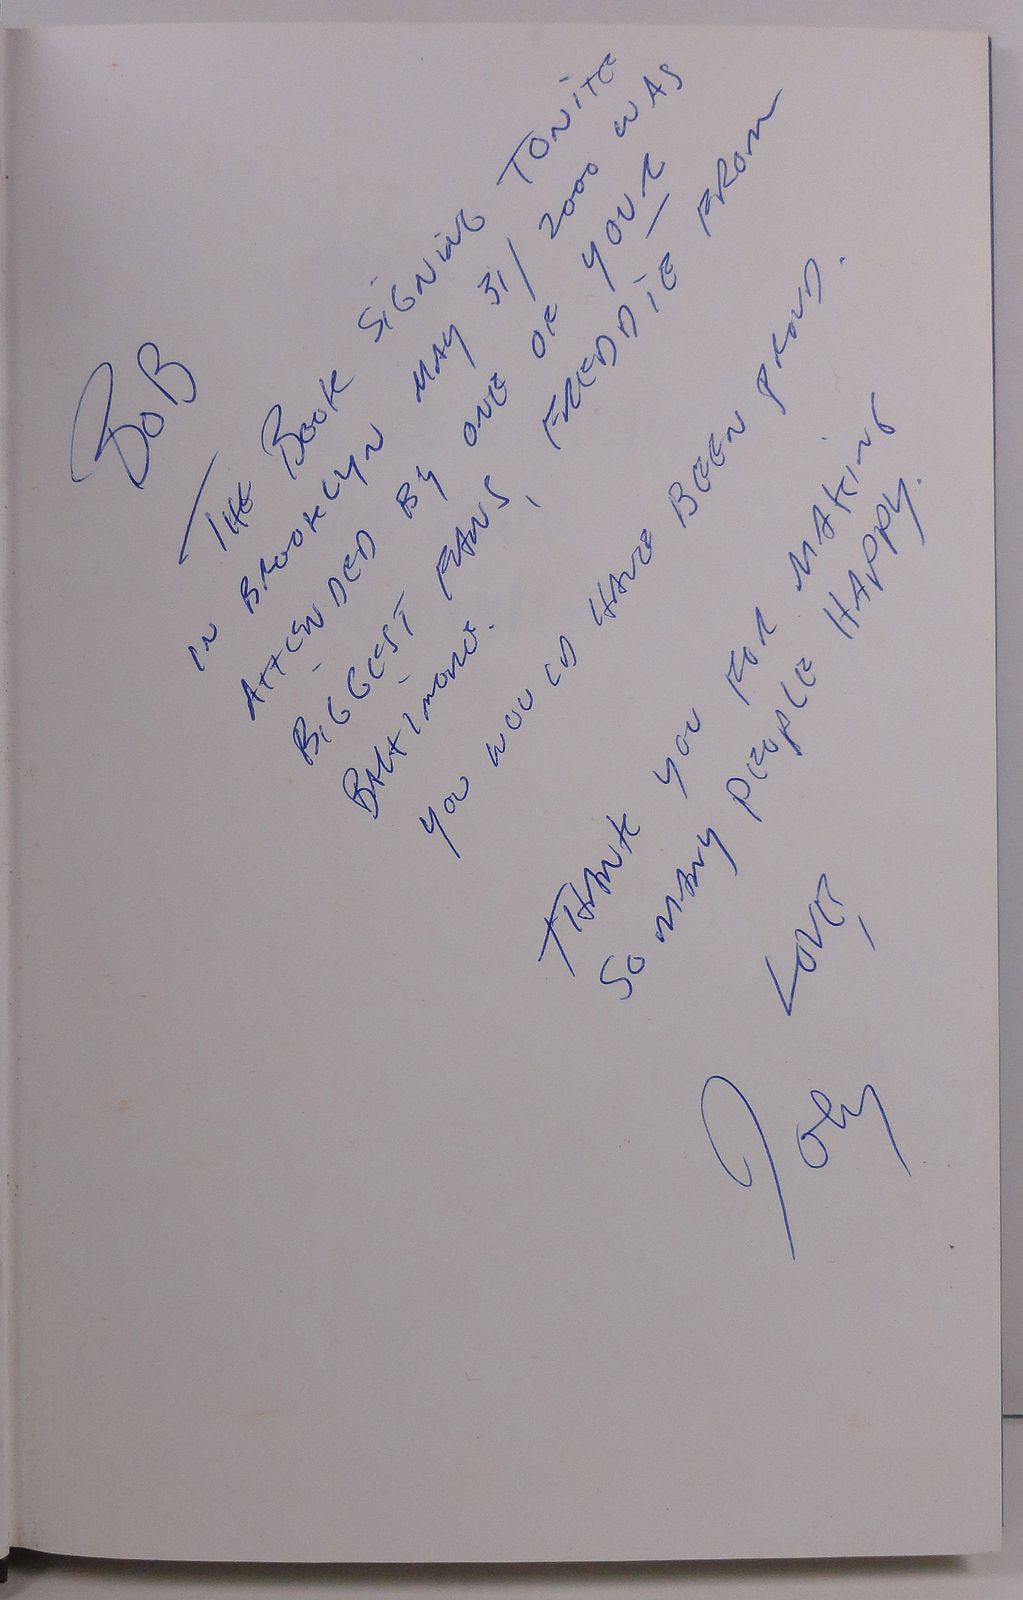 BOB
THE BOOK SIGNING TONITE
IN BROOKLYN MAY 31/2000 WAS
ATTENDED BY ONE OF YOUR
BIGGEST FANS, FREDDIE FROM
BALTIMORE.
YOU WOULD HAVE BEEN PROUD.
THANK YOU FOR MAKING
SO MANY PEOPLE HAPPY.
LOVE,